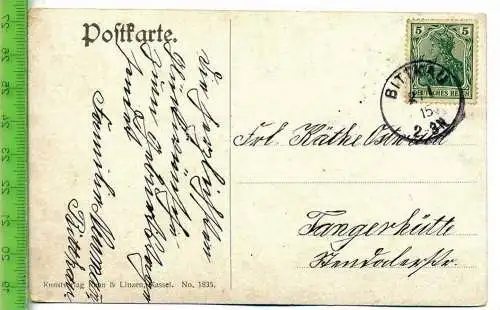 Postkarte.
Die herzlichsten
Glückwünsche
zum Geburtstage
sendet
Familie
Bittkau
5 5
DEUTSCHES REICH
BITTKAU
15
2-3N
Frl. Käthe Oswald
Tangerhütte
Stendalerstr.
Kunstverlag & Linzen, Kassel. No. 1835.